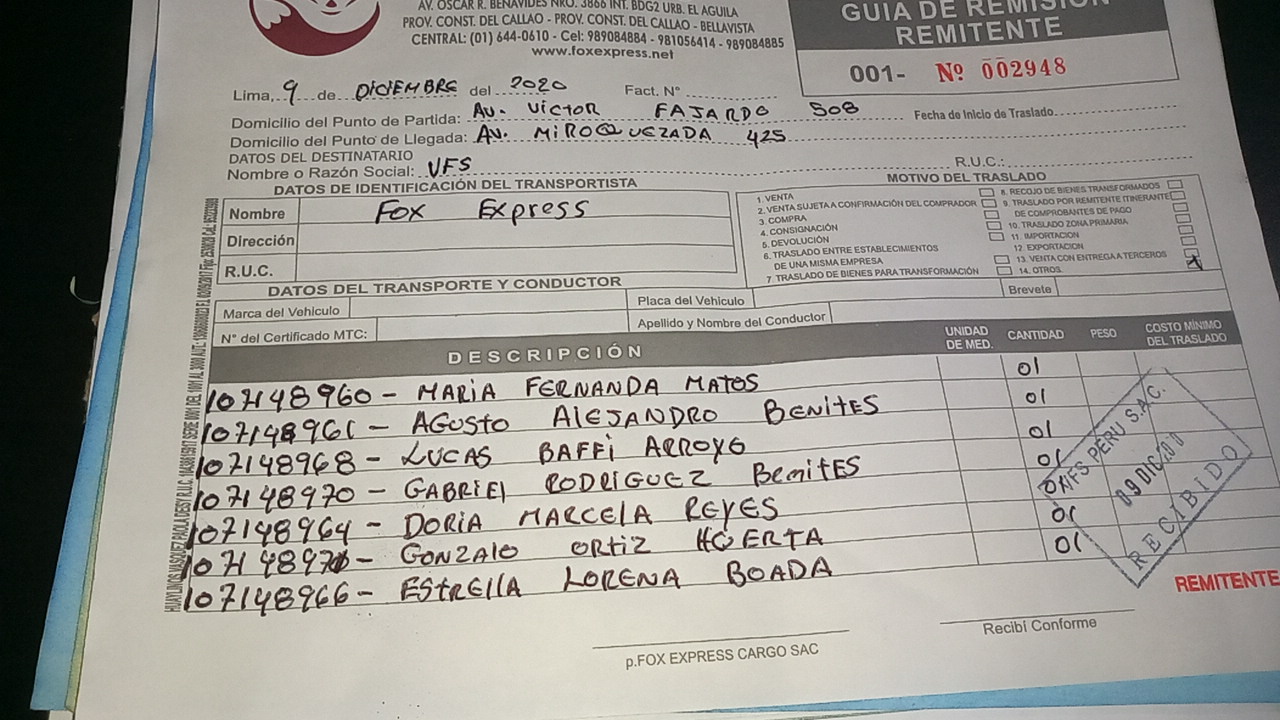 AV. OSCAR R. BENAVIDES NRO. 3866 INT. BDG2 URB. EL AGUILA
PROV. CONST. DEL CALLAO - PROV. CONST. DEL CALLAO - BELLAVISTA
CENTRAL: (01) 644-0610 - Cel: 989084884 - 981056414 - 989084885
www.foxexpress.net
GUIA DE REMISIÓN
REMITENTE
001- Nº 002948
Lima, 9 de DICIEMBRE del 2020 Fact. N°
Domicilio del Punto de Partida: Av. VICTOR FAJARDO 508 Fecha de Inicio de Traslado
Domicilio del Punto de Llegada: AV. MIROQUEZADA 425
DATOS DEL DESTINATARIO
Nombre o Razón Social: VFS R.U.C.:
DATOS DE IDENTIFICACIÓN DEL TRANSPORTISTA
Nombre Fox Express
Dirección
R.U.C.
MOTIVO DEL TRASLADO
1. VENTA
2. VENTA SUJETA A CONFIRMACIÓN DEL COMPRADOR
3. COMPRA
4. CONSIGNACIÓN
5. DEVOLUCIÓN
6. TRASLADO ENTRE ESTABLECIMIENTOS
DE UNA MISMA EMPRESA
7. TRASLADO DE BIENES PARA TRANSFORMACIÓN
8. RECOJO DE BIENES TRANSFORMADOS
9. TRASLADO POR REMITENTE ITINERANTE
DE COMPROBANTES DE PAGO
10. TRASLADO ZONA PRIMARIA
11. IMPORTACION
12. EXPORTACION
13. VENTA CON ENTREGA A TERCEROS
14. OTROS X
DATOS DEL TRANSPORTE Y CONDUCTOR
Marca del Vehiculo Placa del Vehículo Brevete
N° del Certificado MTC: Apellido y Nombre del Conductor
DESCRIPCIÓN UNIDAD DE MED. CANTIDAD PESO COSTO MÍNIMO DEL TRASLADO
107148960 - MARIA FERNANDA MATOS 01
107148961 - AGUSTO ALEJANDRO BENITES 01
107148968 - LUCAS BAFFI ARROYO 01
107148970 - GABRIEL RODRIGUEZ BENITES 01
107148964 - DORIA MARCELA REYES 01
GONZALO ORTIZ HOERTA 01
107148966 - ESTRELLA LORENA BOADA 01
VFS PERU S.A.C.
09 DIC
RECIBIDO
REMITENTE
p.FOX EXPRESS CARGO SAC
Recibí Conforme